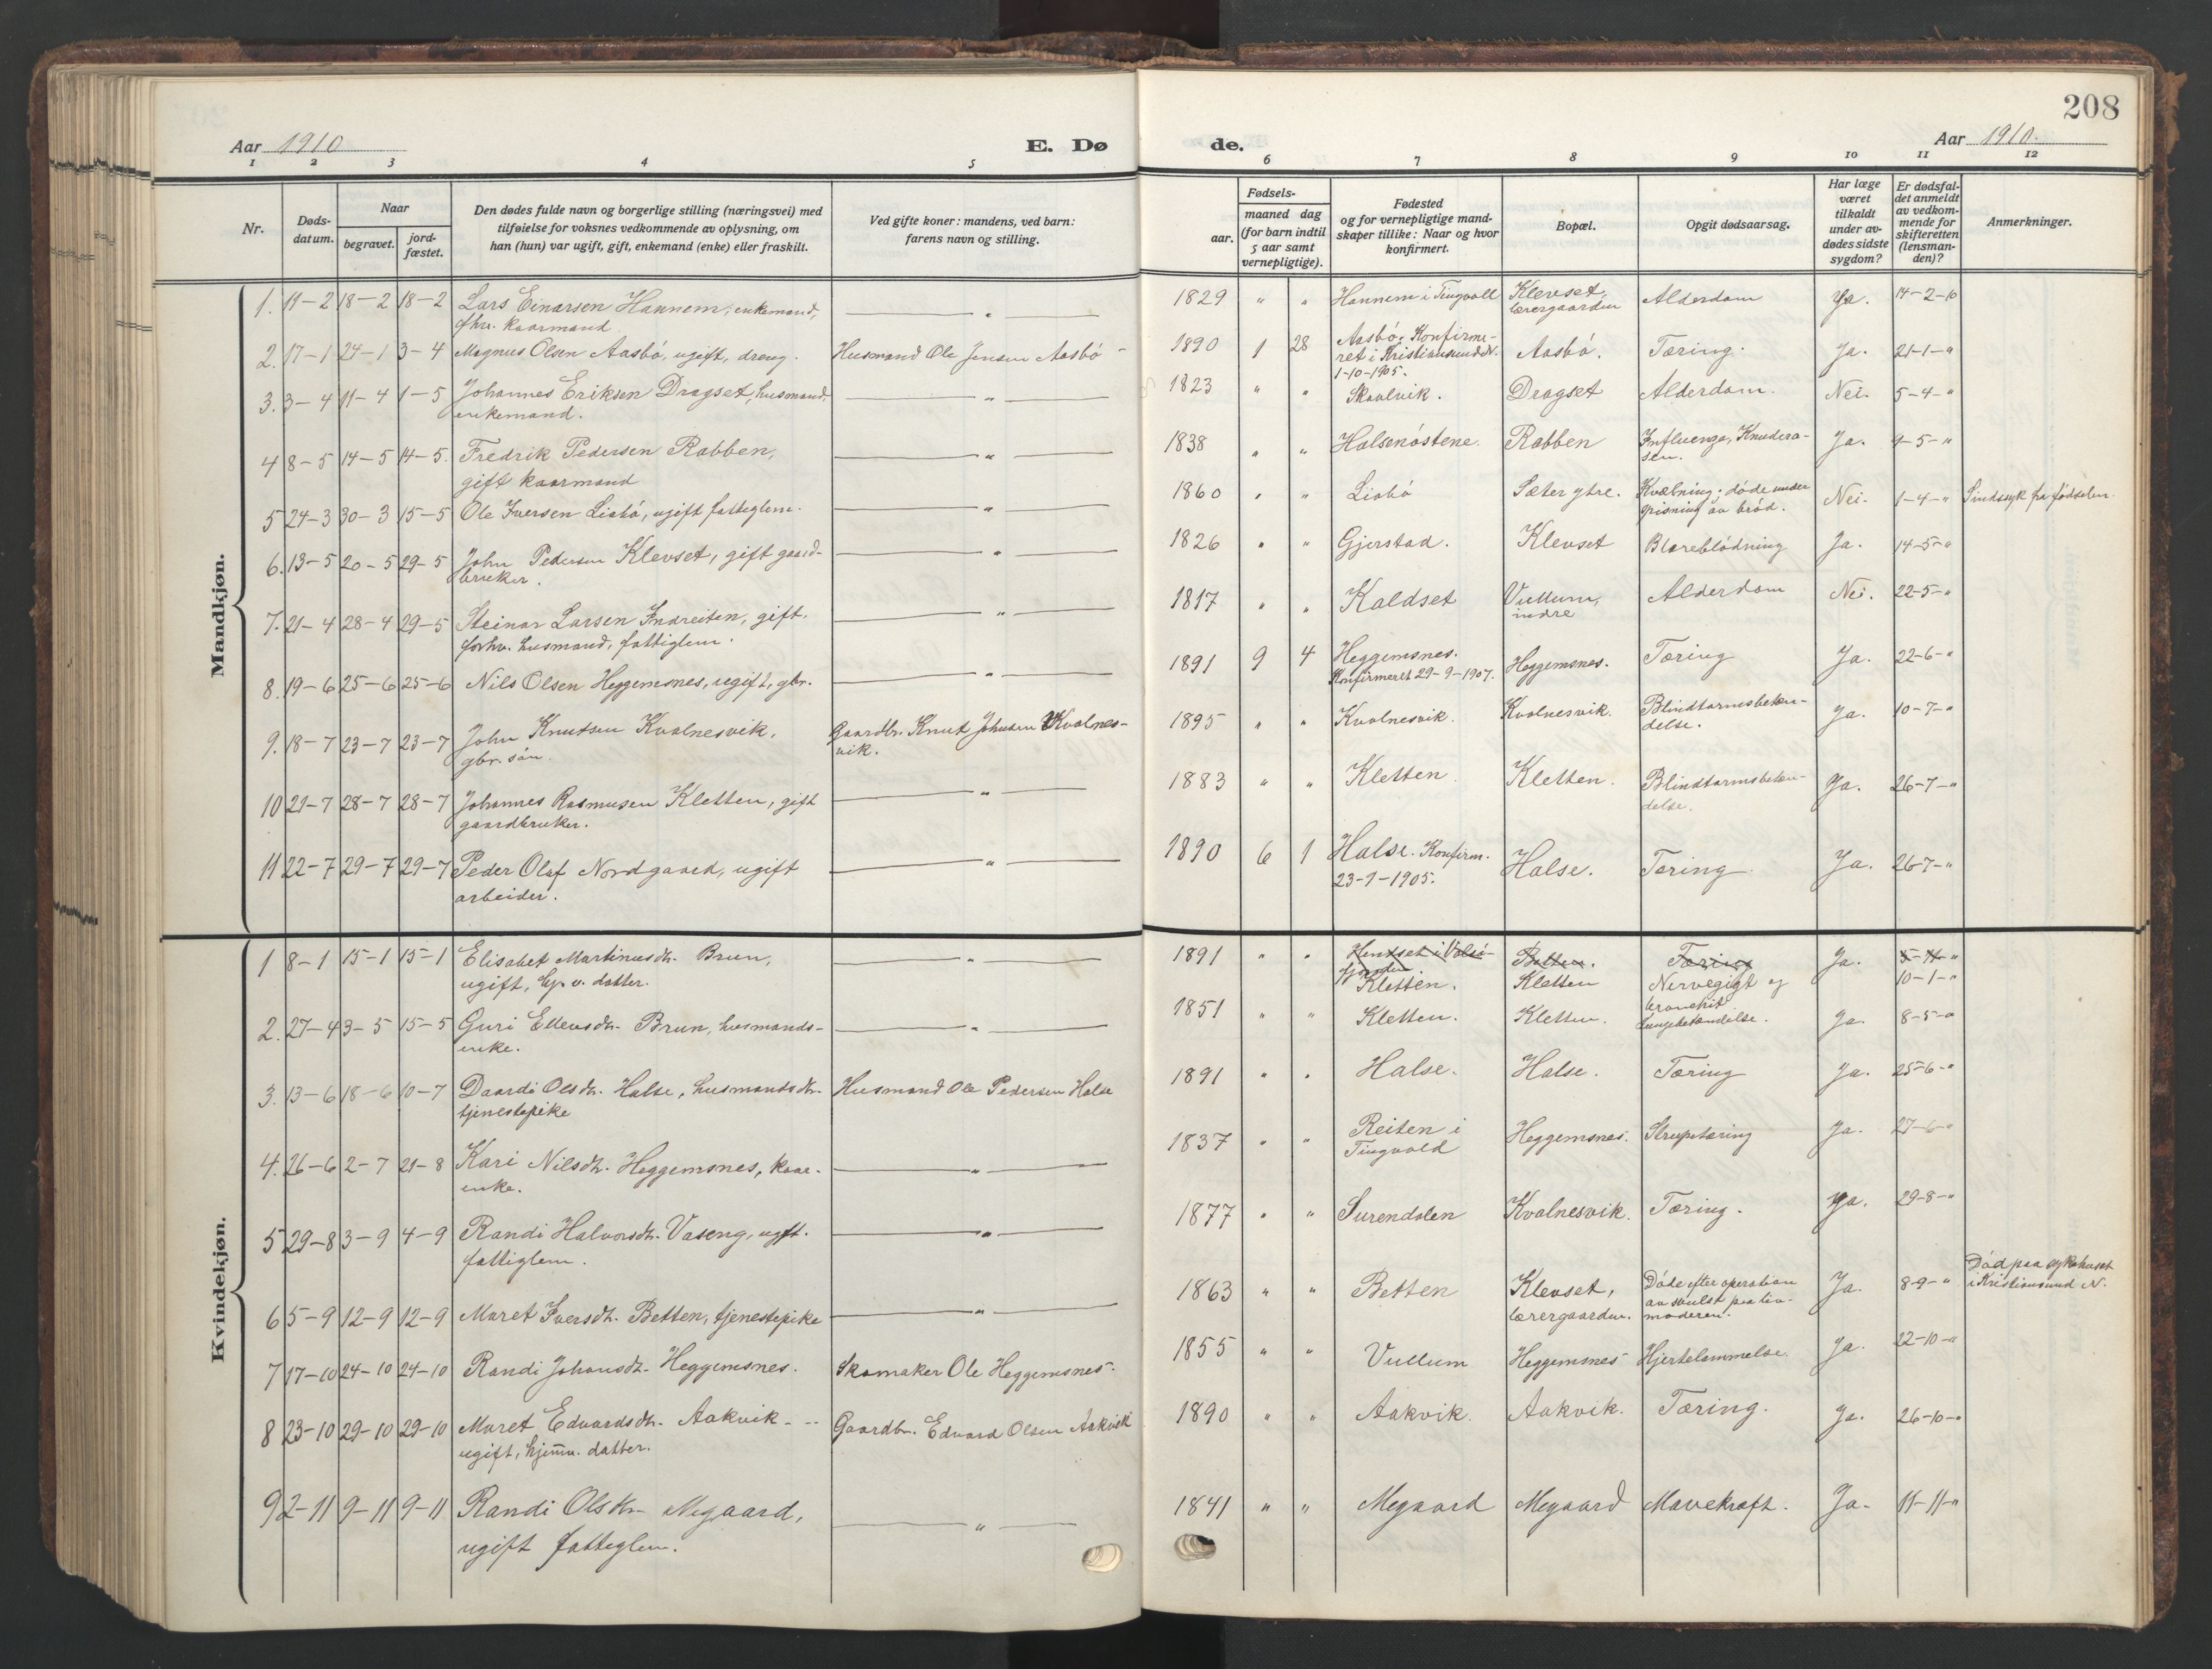 208
Aar 1910
E. Dø
de.
Aar 1910.
1 2 3 4 5 6 7 8 9 10 11 12
Nr.
Døds-
datum.
Naar
begravet.
jord-
fæstet.
Den dødes fulde navn og borgerlige stilling (næringsvei) med
tilføielse for voksnes vedkommende av oplysning, om
han (hun) var ugift, gift, enkemand (enke) eller fraskilt.
Ved gifte koner: mandens, ved barn:
farens navn og stilling.
Fødsels-
aar.
maaned dag
(for barn indtil
5 aar samt
vernepligtige).
Fødested
og for vernepligtige mand-
skaper tillike: Naar og hvor
konfirmert.
Bopæl.
Opgit dødsaarsag.
Har læge
været
tilkaldt
under av-
dødes sidste
sygdom?
Er dødsfal-
det anmeldt
av vedkom-
mende for
skifteretten
(lensman-
den)?
Anmerkninger.
Mandkjøn.
1. 11-2 18-2 18-2 Lars Einarsen Hannem, enkemand,
fhv. kaarmand
" 1829 " " Hannem i Tingvoll Klevset, lærergaarden Alderdom Ja. 14-2-10
2. 17-1 24-1 3-4 Magnus Olsen Aasbö, ugift, dreng. Husmand Ole Jensen Aasbö
1890 1 28 Aasbö, Konfirme-
ret i Kristiansund N.
1-10-1905.
Aasbö. Tæring. Ja. 21-1-"
3. 3-4 11-4 1-5 Johannes Eriksen Dragset, husmand,
enkemand.
" 1823 " " Skaalvik. Dragset Alderdom. Nei. 5-4-"
4 8-5 14-5 14-5. Fredrik Pedersen Rabben,
gift kaarmand
" 1838 " " Halsenöstene. Rabben Influenza, Knudero-
sen. Ja. 9-5-"
5 24-3 30-3 15-5 Ole Iversen Liabö, ugift fattiglem.
" 1860 " " Liabö Sæter ytre. Kvælning; döde under
spisning av bröd. Nei. 1-4-" Sindssyk fra födselen.
6. 13-5 20-5 29-5 John Pedersen Klevset, gift gaard-
bruker.
" 1826 " " Gjerstad. Klevset Blæreblödning Ja. 14-5-"
7. 21-4 28-4 29-5 Steinar Larsen Indreiten, gift.
forhv. husmand, fattiglem.
" 1817 " " Kaldset Vullum, indre Alderdom Nei. 22-5-"
8. 19-6 25-6 25-6 Nils Olsen Heggemsnes, ugift, gbr.
" 1891 9 4 Heggemsnes.
Konfirmeret 29-9-1907. Heggemsnes. Tæring Ja. 22-6-"
9. 18-7 23-7 23-7 John Knutsen Kvalnesvik,
gbr. sön.
Gaardbr. Knut Johnsen Kvalnes-
vik.
1895 " " Kvalnesvik. Kvalnesvik. Blindtarmsbetæn-
delse. Ja. 10-7-"
10 21-7 28-7 28-7 Johannes Rasmusen Kletten, gift
gaardbruker.
" 1883 " " Kletten. Kletten. Blindtarmsbetæn-
delse. Ja. 26-7-"
11 22-7 29-7 29-7 Peder Olaf Nordgaard, ugift
arbeider.
" 1890 6 1 Halse. Konfirm.
23-9-1905. Halse. Tæring Ja. 26-7-"
Kvindekjøn.
1 8-1 15-1 15-1 Elisabet Martinusdtr. Brun,
ugift, hj. v. datter.
" 1891 " " Kletten. Betten. Kletten Tæring Nervegigt og
bronchit Ja. 10-1-"
2. 27-4 3-5 15-5 Guri Ellevsdtr. Brun, husmands-
enke.
" 1851 " " Kletten. Kletten. Lungebetændelse. Ja. 8-5-"
3. 13-6 18-6 10-7 Daardi Olsdtr. Halse, husmandsdtr.
tjenestepike
Husmand Ole Pedersen Halse
1891 " " Halse. Halse. Tæring Ja. 25-6-"
4. 26-6 2-7 21-8 Kari Nilsdtr. Heggemsnes, kaar-
enke.
" 1837 " " Reiten i
Tingvold Heggemsnes. Strupetæring Ja. 27-6-"
5 29-8 3-9 4-9 Randi Halvorsdtr. Vaseng, ugift.
fattiglem.
" 1877 " " Surendalen Kvalnesvik. Tæring. Ja. 29-8-"
6 5-9 12-9 12-9 Maret Iversdtr. Betten, tjenestepike
" 1863 " " Betten Klevset,
lærergaarden. Döde efter operation
av svulst paa liv-
moderen. Ja. 8-9-" Död paa sykehuset
i Kristiansund N.
7 17-10 24-10 24-10 Randi Johansdtr. Heggemsnes. Skomaker Ole Heggemsnes.
1855 " " Vullum Heggemsnes Hjertelammelse. Ja. 22-10-"
8 23-10 29-10 29-10 Maret Edvardsdtr. Aakvik
ugift, hjemv. datter.
Gaardbr. Edvard Olsen Aakvik
1890 " " Aakvik. Aakvik. Tæring. Ja. 26-10-"
9 2-11 9-11 9-11 Randi Olsdtr. Megaard,
ugift fattiglem.
" 1841 " " Megaard Megaard Mavekræft. Ja. 11-11-"